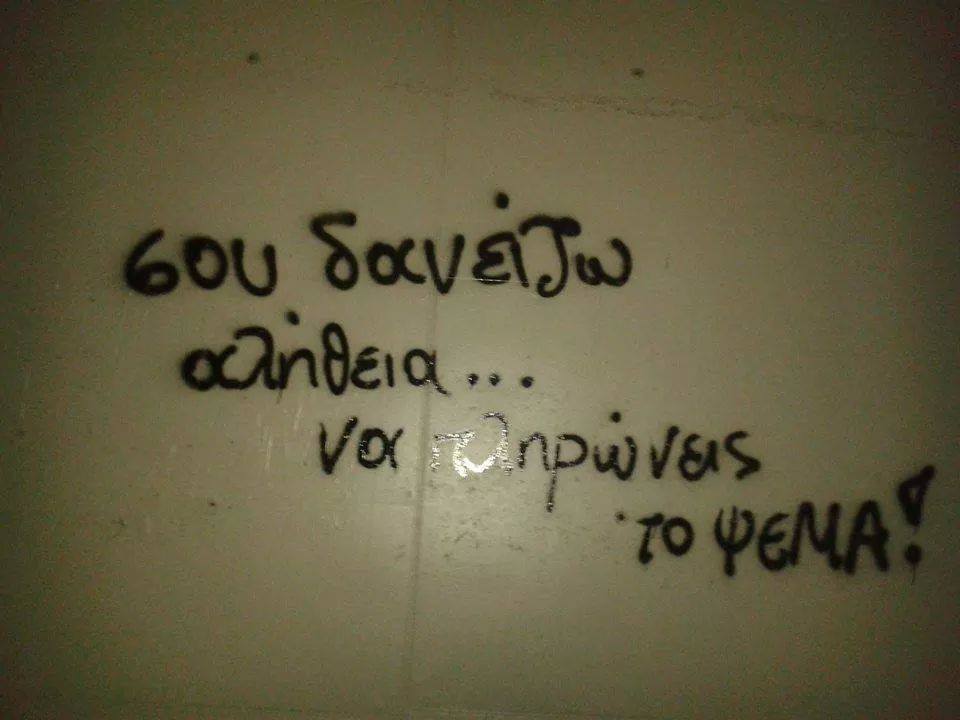 σου δανείζω
αλήθεια...
να πληρώνεις
το ψΕΜΑ!